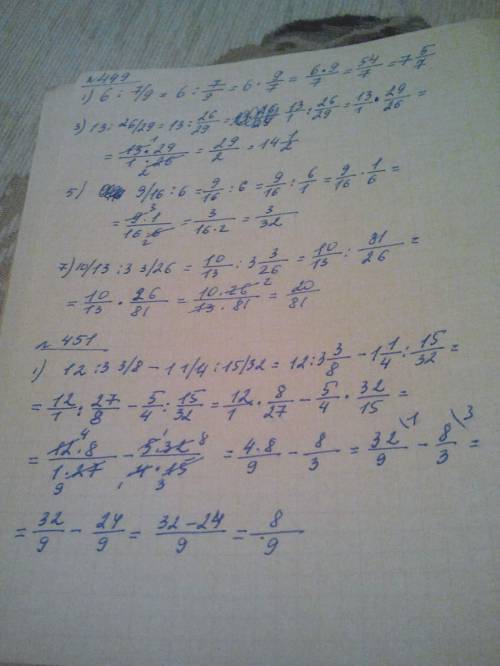 № 499
1) 6 : 7/9 = 6 : 7/9 = 6 · 9/7 = 6·9/7 = 54/7 = 7 5/7
3) 13 : 26/29 = 13 : 26/29 = 13/1 : 26/29 = 13/1 · 29/26 =
= 13·29/1·26 = 29/2 = 14 1/2
5) 9/16 : 6 = 9/16 : 6 = 9/16 : 6/1 = 9/16 · 1/6 =
= 9·1/16·6 = 3/16·2 = 3/32
7) 10/13 : 3 3/26 = 10/13 : 3 3/26 = 10/13 : 81/26 =
= 10/13 · 26/81 = 10·26/13·81 = 20/81
№ 451
1) 12 : 3 3/8 - 1 1/4 : 15/32 = 12 : 3 3/8 - 1 1/4 : 15/32 =
= 12/1 : 27/8 - 5/4 : 15/32 = 12/1 · 8/27 - 5/4 · 32/15 =
= 12·8/1·27 - 5·32/4·15 = 4·8/9 - 8/3 = 32/9 \1 - 8/3 \3 =
= 32/9 - 24/9 = 32-24/9 = 8/9